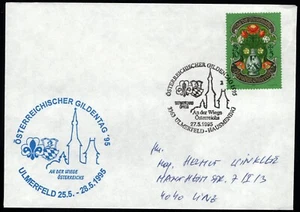 ÖSTERREICHISCHER GILDENTAG '95
AN DER WIEGE
ÖSTERREICHS
ULMERFELD 25.5. - 28.5.1995
ÖSTERREICHISCHER GILDENTAG 1995
An der Wiege
Österreichs
27.5.1995
3363 ULMERFELD - HAUSMENING
HELMUT WINKLER
4040 LINZ